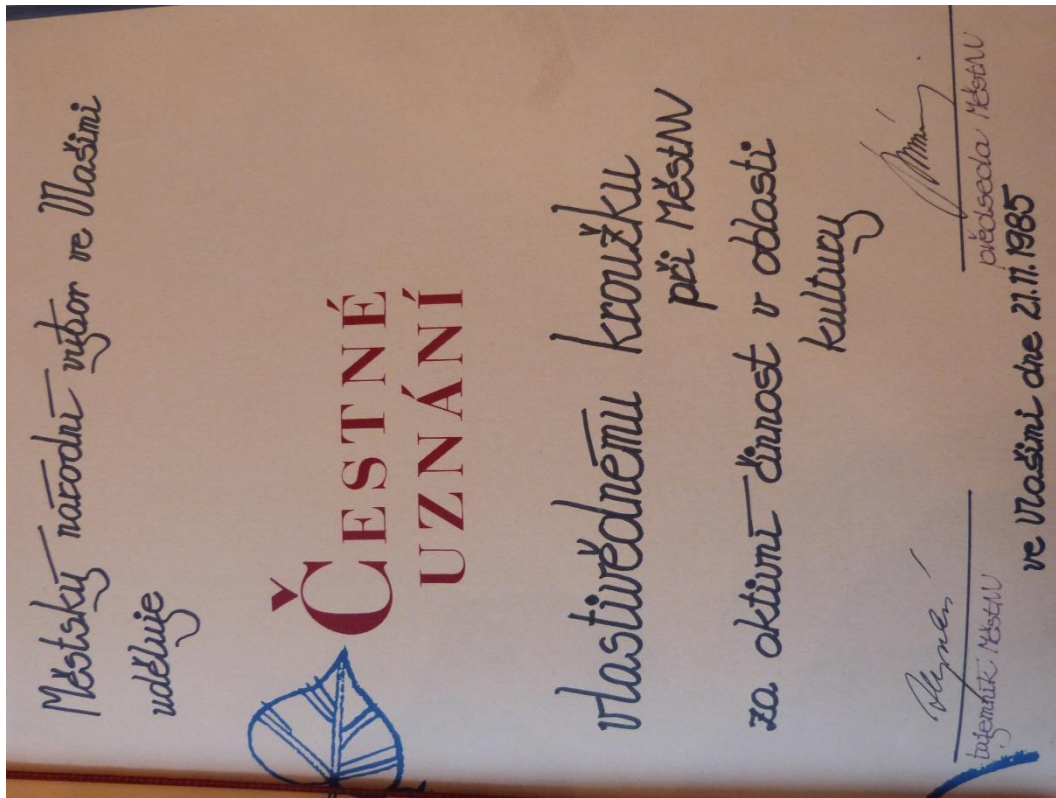 Městský národní výbor ve Vlašimi
uděluje
ČESTNÉ
UZNÁNÍ
vlastivědnému kroužku
při MěstNV
za aktivní činnost v oblasti
kultury
tajemník MěstNV
předseda MěstNV
ve Vlašimi dne 21.11.1985